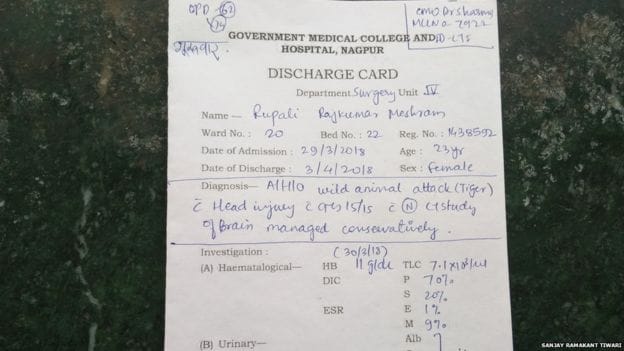 OPD - 62
74
गुरूवार
CMO Dr Sharma
MLC No - 7922
GOVERNMENT MEDICAL COLLEGE AND
HOSPITAL, NAGPUR
DISCHARGE CARD
Department Surgery Unit IV
Name — Rupali Rajkumar Meshram
Ward No. : 20 Bed No. : 22 Reg. No. : 1438592
Date of Admission : 29/3/2018 Age : 23yr
Date of Discharge : 3/4/2018 Sex : Female
Diagnosis — A/H/O wild animal attack (Tiger)
c̄ Head injury c̄ GCS 15/15 c̄ (N) CT study
of Brain managed conservatively.
Investigation : (30/3/18)
(A) Haematalogical— HB 11 g/dl TLC 7.1x10³/ul
DIC P 70%
S 20%
ESR E 1%
M 9%
(B) Urinary— Alb
SANJAY RAMAKANT TIWARI